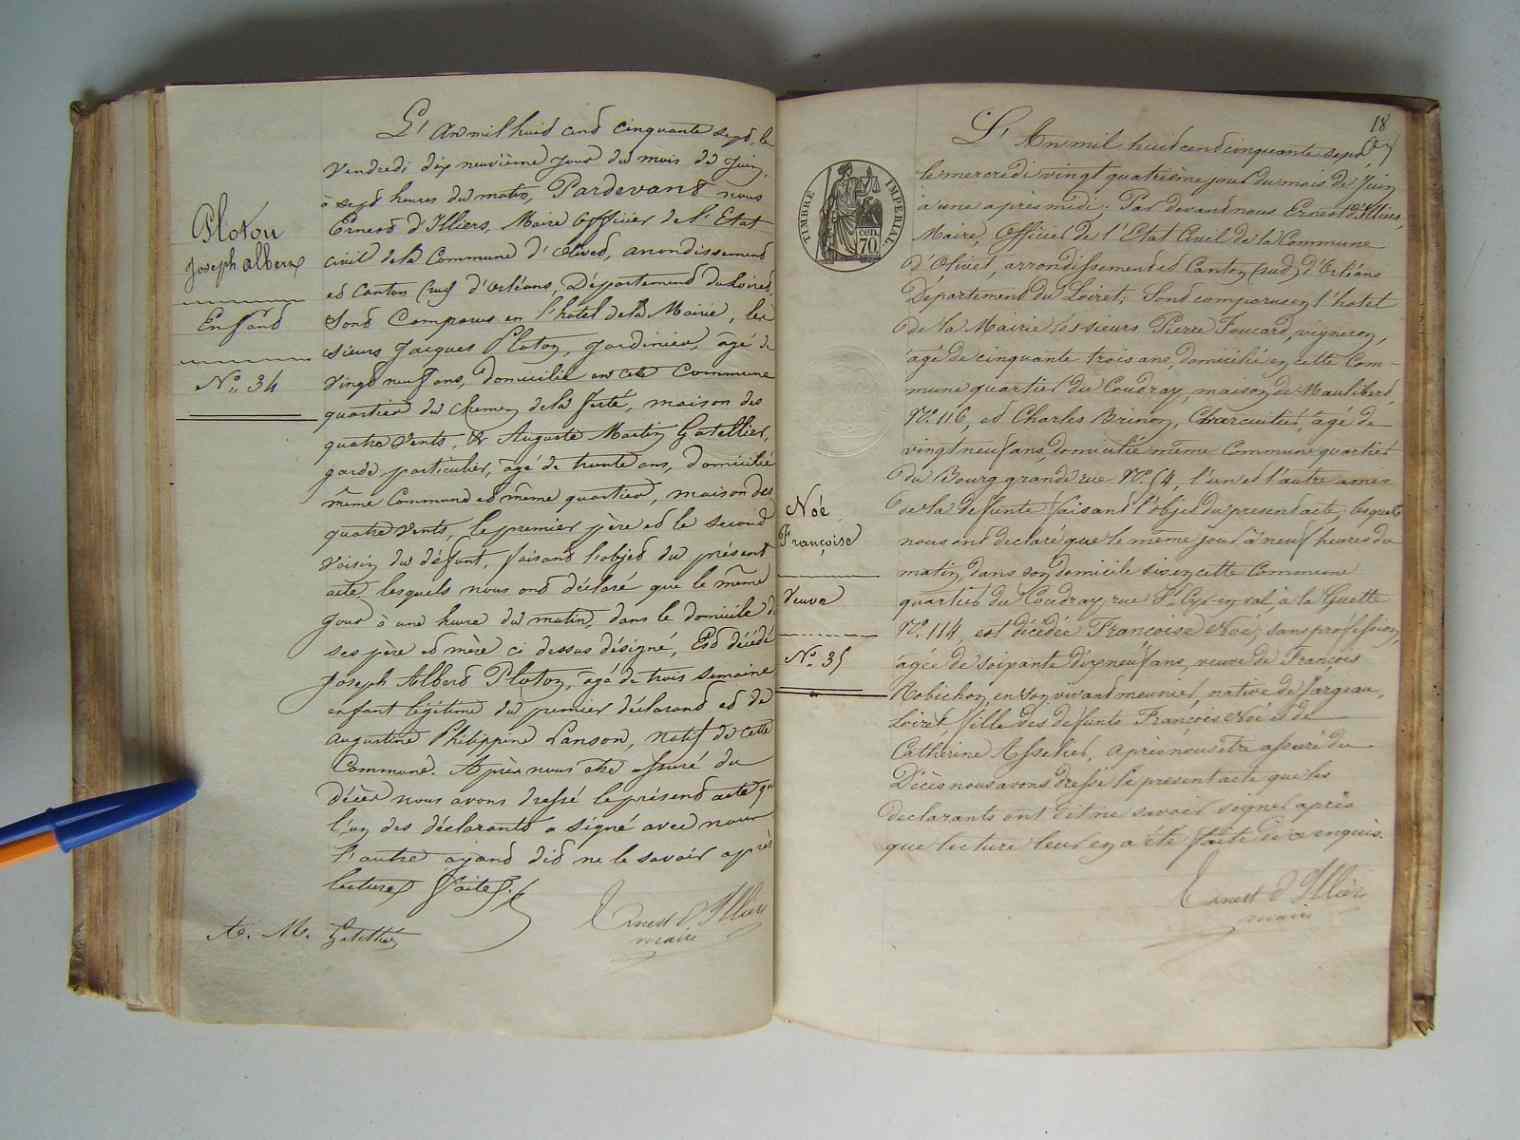 Ploton
Joseph Albert
Enfant
N° 34
L'An mil huit cent cinquante sept, le
Vendredi dix neuvième jour du mois de Juin,
à sept heures du matin, Pardevant nous
Ernest d'Illiers, Maire Officier de l'Etat
civil de la Commune d'Olivet, arrondissement
et Canton (sud) d'Orléans, Département du Loiret,
Sont Comparus en l'hôtel de la Mairie, les
sieurs Jacques Ploton, jardinier, âgé de
vingt neuf ans, domicilié en cette Commune
quartier du chemin de la ferté, maison des
quatre vents, & Auguste Martin Gatellier,
garde particulier, âgé de trente ans, domicilié
même Commune et même quartier, maison des
quatre vents, le premier père et le second
voisin du défunt, faisant l'objet du présent
acte, lesquels nous ont déclaré que le même
jour à une heure du matin, dans le domicile de
ses père et mère ci dessus désigné, Est décédé
Joseph Albert Ploton, âgé de trois semaine
enfant légitime du premier déclarant et de
Augustine Philippine Lanson, natif de cette
Commune. Après nous être assuré du
décès nous avons dressé le présent acte que
l'un des déclarants a signé avec nous
l'autre ayant dit ne le savoir après
lecture faite.
A. M. Gatellier
Ernest d'Illiers
maire
18
L'An mil huit cent cinquante sept
le mercredi vingt quatrième jour du mois de Juin
à une après midi; Par devant nous Ernest d'Illiers,
Maire, Officier de l'Etat Civil de la Commune
d'Olivet, arrondissement et Canton (sud) d'Orléans
Département du Loiret; Sont comparus en l'hôtel
de la Mairie les sieurs Pierre Foucard, vigneron,
âgé de cinquante trois ans, domicilié en cette Com-
mune quartier du Coudray, maison de Maulibert,
N° 116, et Charles Brinon, Charcutier, âgé de
vingt neuf ans, domicilié même Commune quartier
du Bourg grande rue N° 54, l'un et l'autre amis
de la défunte faisant l'objet du présent acte, lesquels
nous ont déclaré que le même jour à neuf heures du
matin, dans son domicile sis en cette Commune
quartier du Coudray, rue St Cyr en val, à la Guette
N° 114, est décédée Françoise Noé, sans profession,
âgée de soixante dix neuf ans, veuve de François
Robichon, en son vivant meunier, native de Jargeau,
Loiret, fille des défunts François Noé et de
Catherine Asselin, après nous être assuré du
Décès nous avons dressé le présent acte que les
déclarants ont dit ne savoir signer après
que lecture leur en a été faite de ce enquis.
Ernest d'Illiers
maire
TIMBRE IMPERIAL
70 cen.
Noé
Françoise
Veuve
N° 35